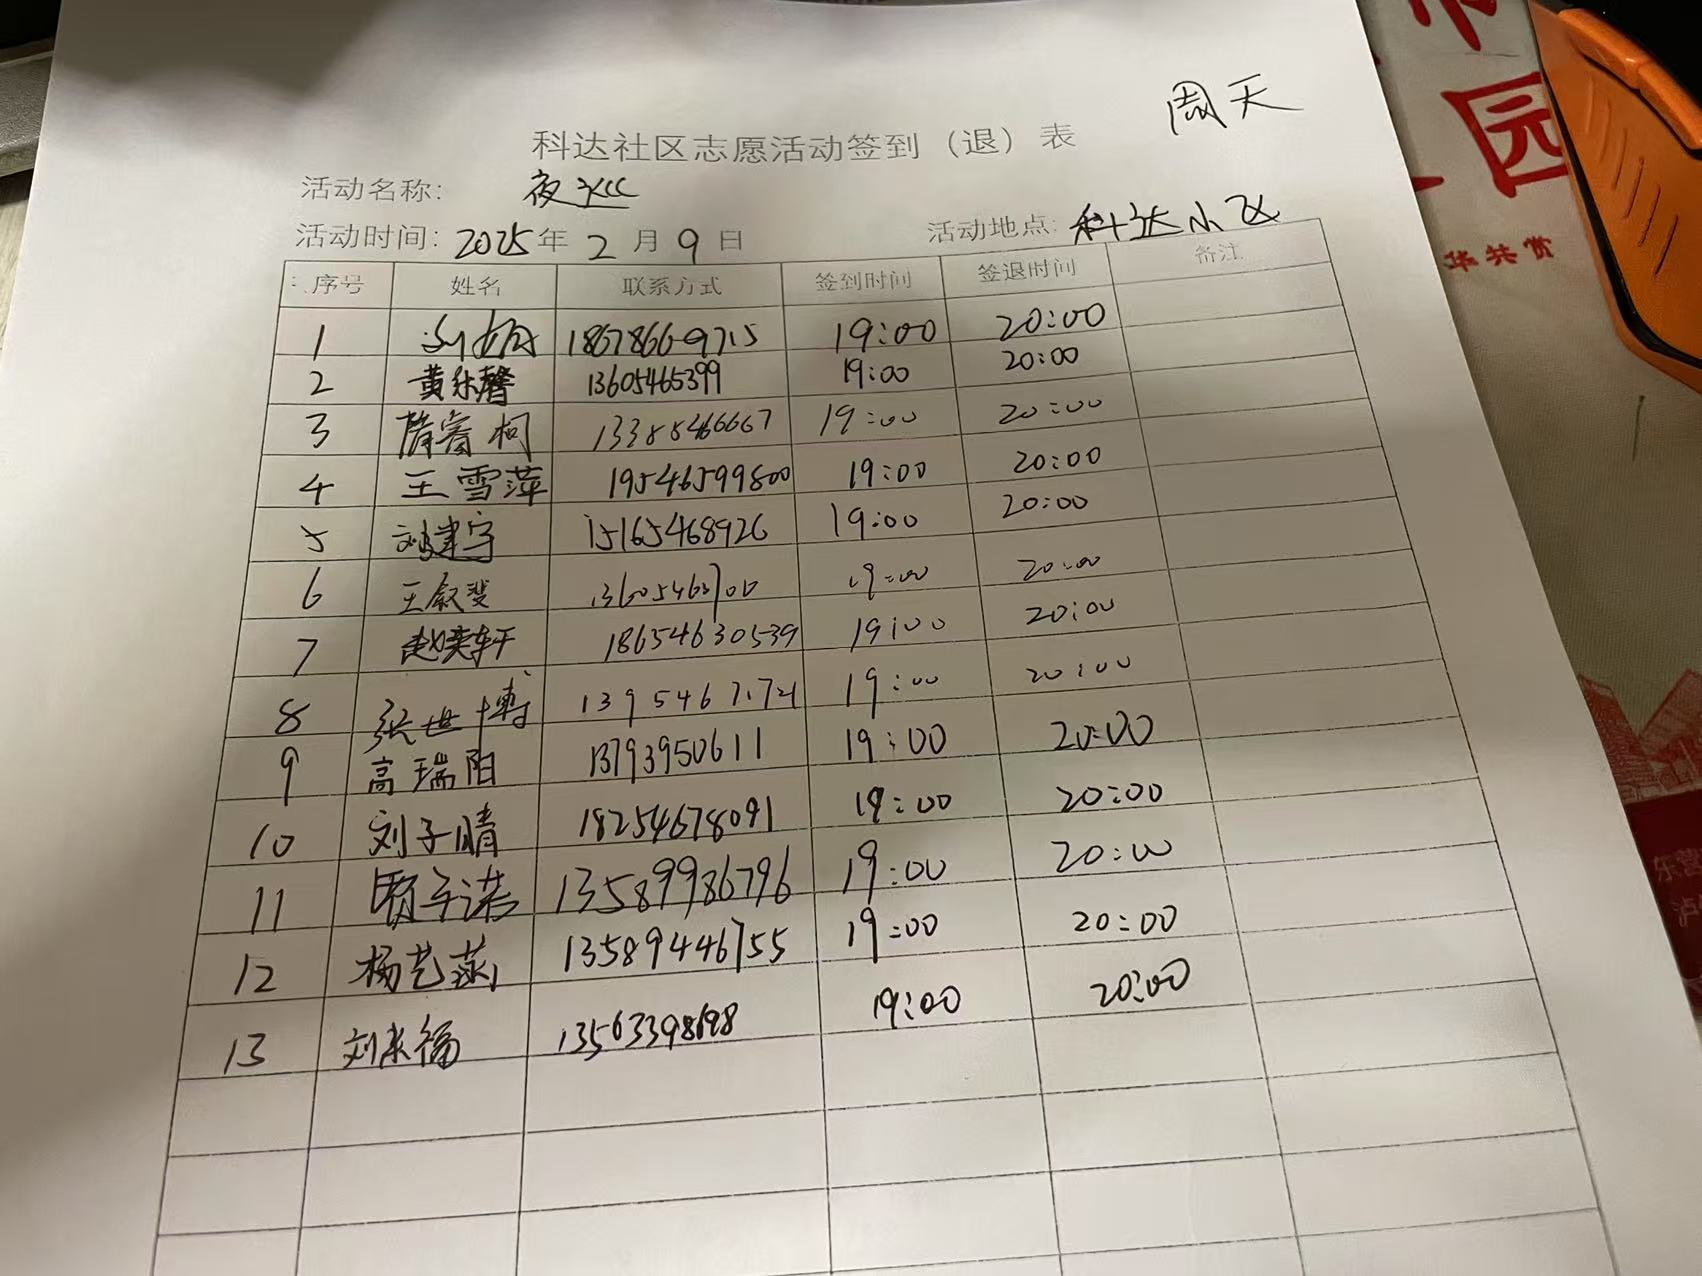 周天
科达社区志愿活动签到（退）表
活动名称: 夜巡
活动时间: 2025年2月9日 活动地点: 科达小区
序号 姓名 联系方式 签到时间 签退时间 备注
1 18678669715 19:00 20:00
2 黄乐馨 13605465399 19:00 20:00
3 隋睿柯 13385466667 19:00 20:00
4 王雪萍 19546599800 19:00 20:00
5 刘建宇 15165468926 19:00 20:00
6 王叙斐 19:00 20:00
7 赵奕轩 18654630539 19:00 20:00
8 张世博 19:00 20:00
9 高瑞阳 13793950611 19:00 20:00
10 刘子晴 18254678091 19:00 20:00
11 贾子诺 13589986796 19:00 20:00
12 杨艺菡 13589446755 19:00 20:00
13 刘来福 13563398698 19:00 20:00
园
华共赏
乐营